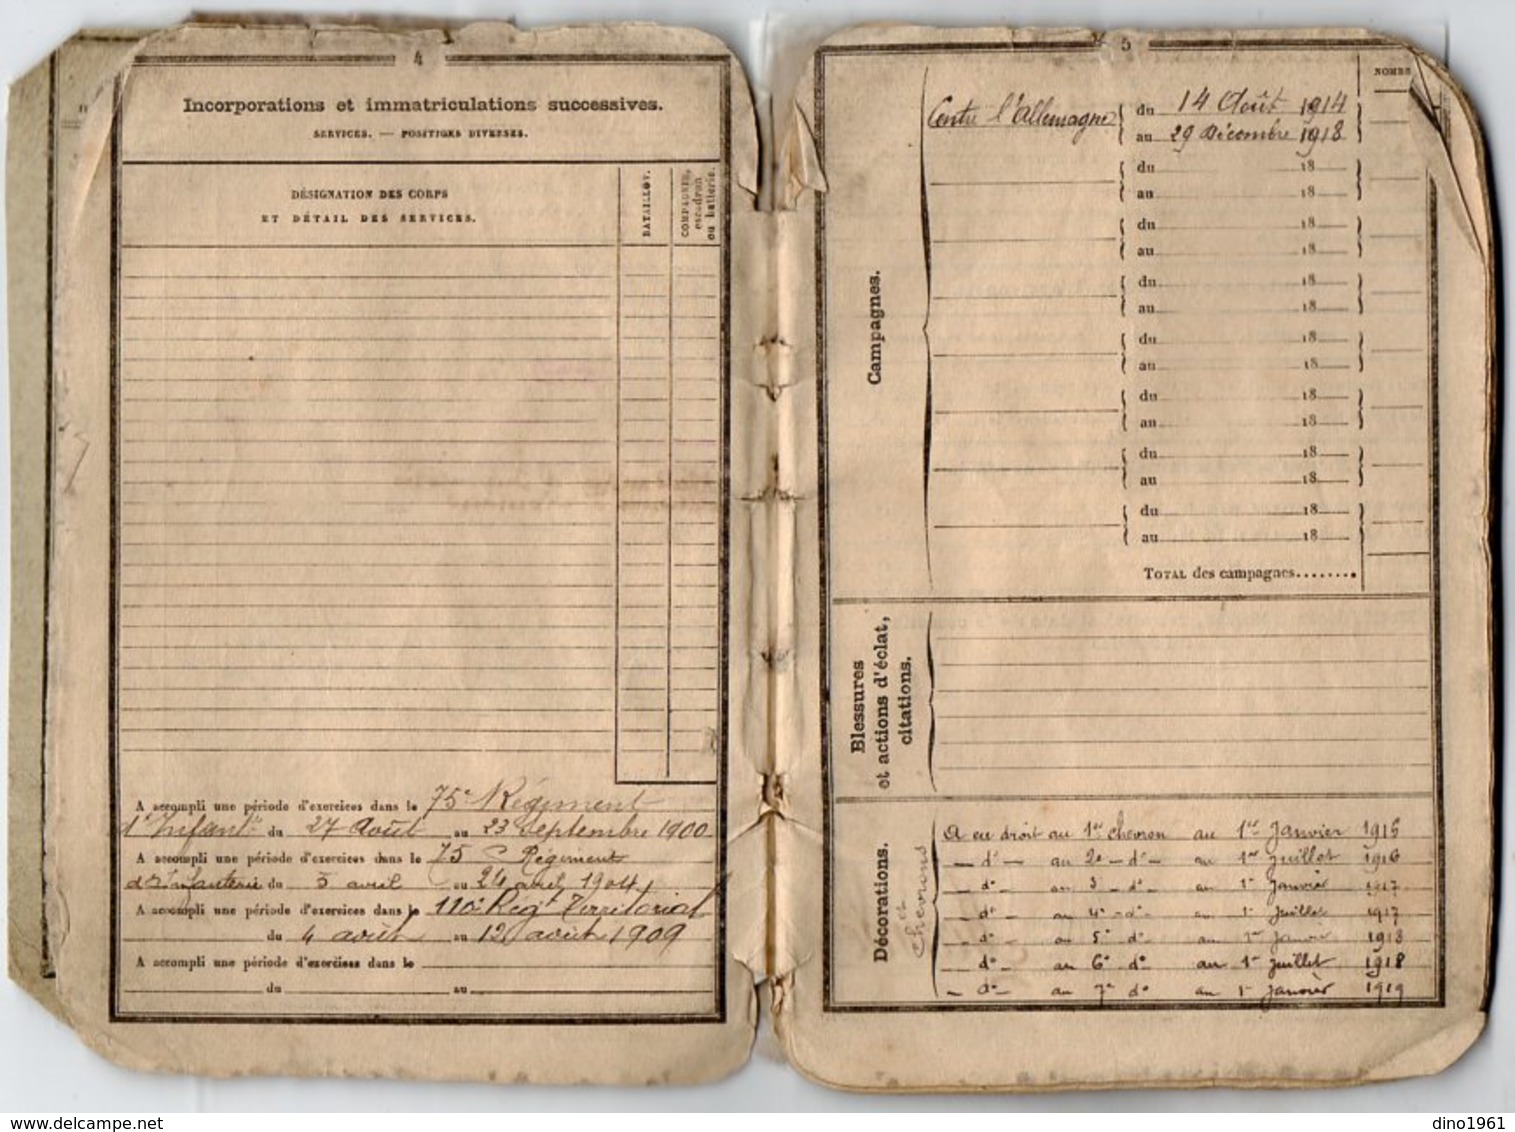 4
Incorporations et immatriculations successives.
SERVICES. — POSITIONS DIVERSES.
DÉSIGNATION DES CORPS
ET DÉTAIL DES SERVICES.
BATAILLON.
COMPAGNIE,
escadron
ou batterie.
A accompli une période d'exercices dans le 75e Régiment
d'Infantie du 27 Août au 23 Septembre 1900
A accompli une période d'exercices dans le 75e Régiment
d'Infanterie du 5 avril au 24 avril 1904
A accompli une période d'exercices dans le 110e Regt Territorial
du 4 août au 12 août 1909
A accompli une période d'exercices dans le
du au
5
NOMBRE
Campagnes.
Contre l'Allemagne du 14 Août 1914
au 29 Décembre 1918
du 18
au 18
du 18
au 18
du 18
au 18
du 18
au 18
du 18
au 18
du 18
au 18
du 18
au 18
TOTAL des campagnes........
Blessures
et actions d'éclat,
citations.
Décorations.
et
Chevrons
A eu droit au 1er chevron au 1er Janvier 1916
— do — au 2e — do — au 1er Juillet 1916
— do — au 3 — do — au 1er Janvier 1917
— do — au 4e — do — au 1er Juillet 1917
— do — au 5e do — au 1er Janvier 1918
— do — au 6e do au 1er Juillet 1918
— do — au 7e do au 1er Janvier 1919
dino1961